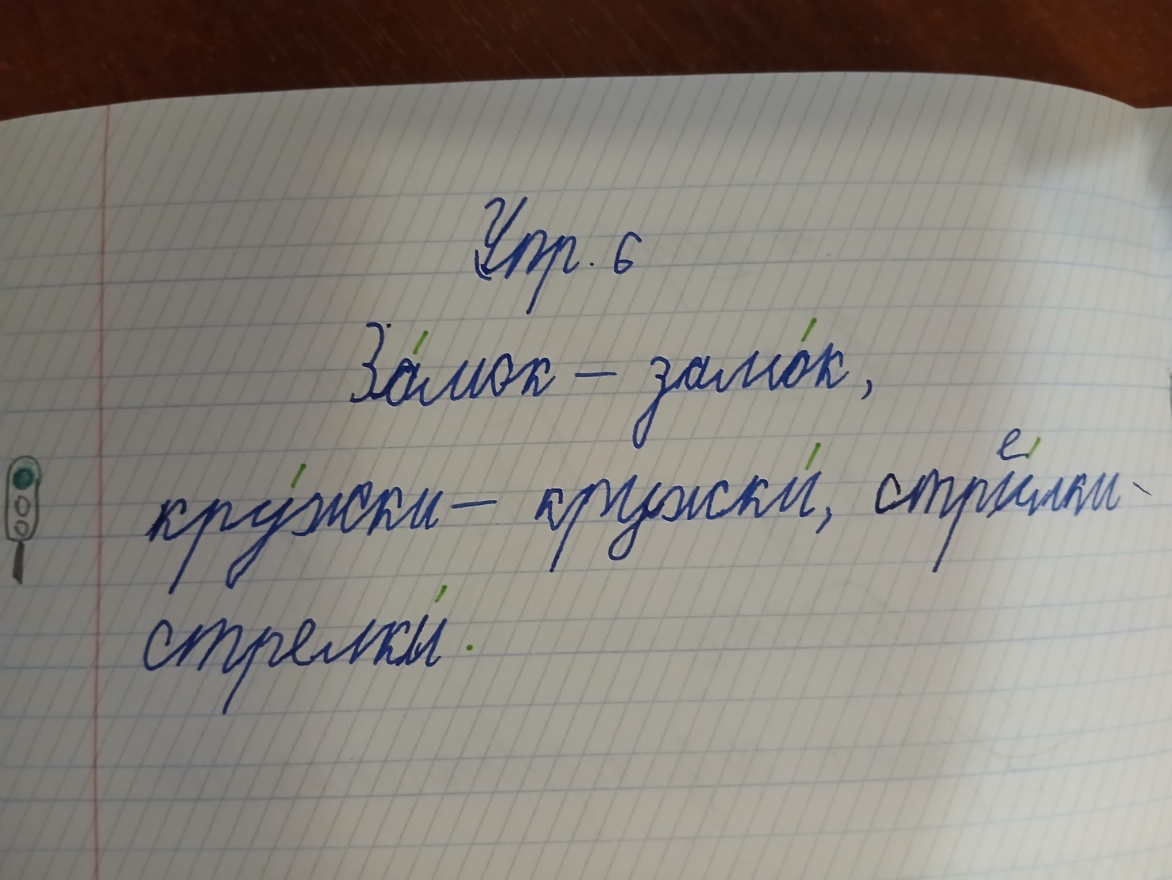 Упр. 6
За́мок – замо́к,
кру́жски – кружски́, стре́лки -
стрелки́.